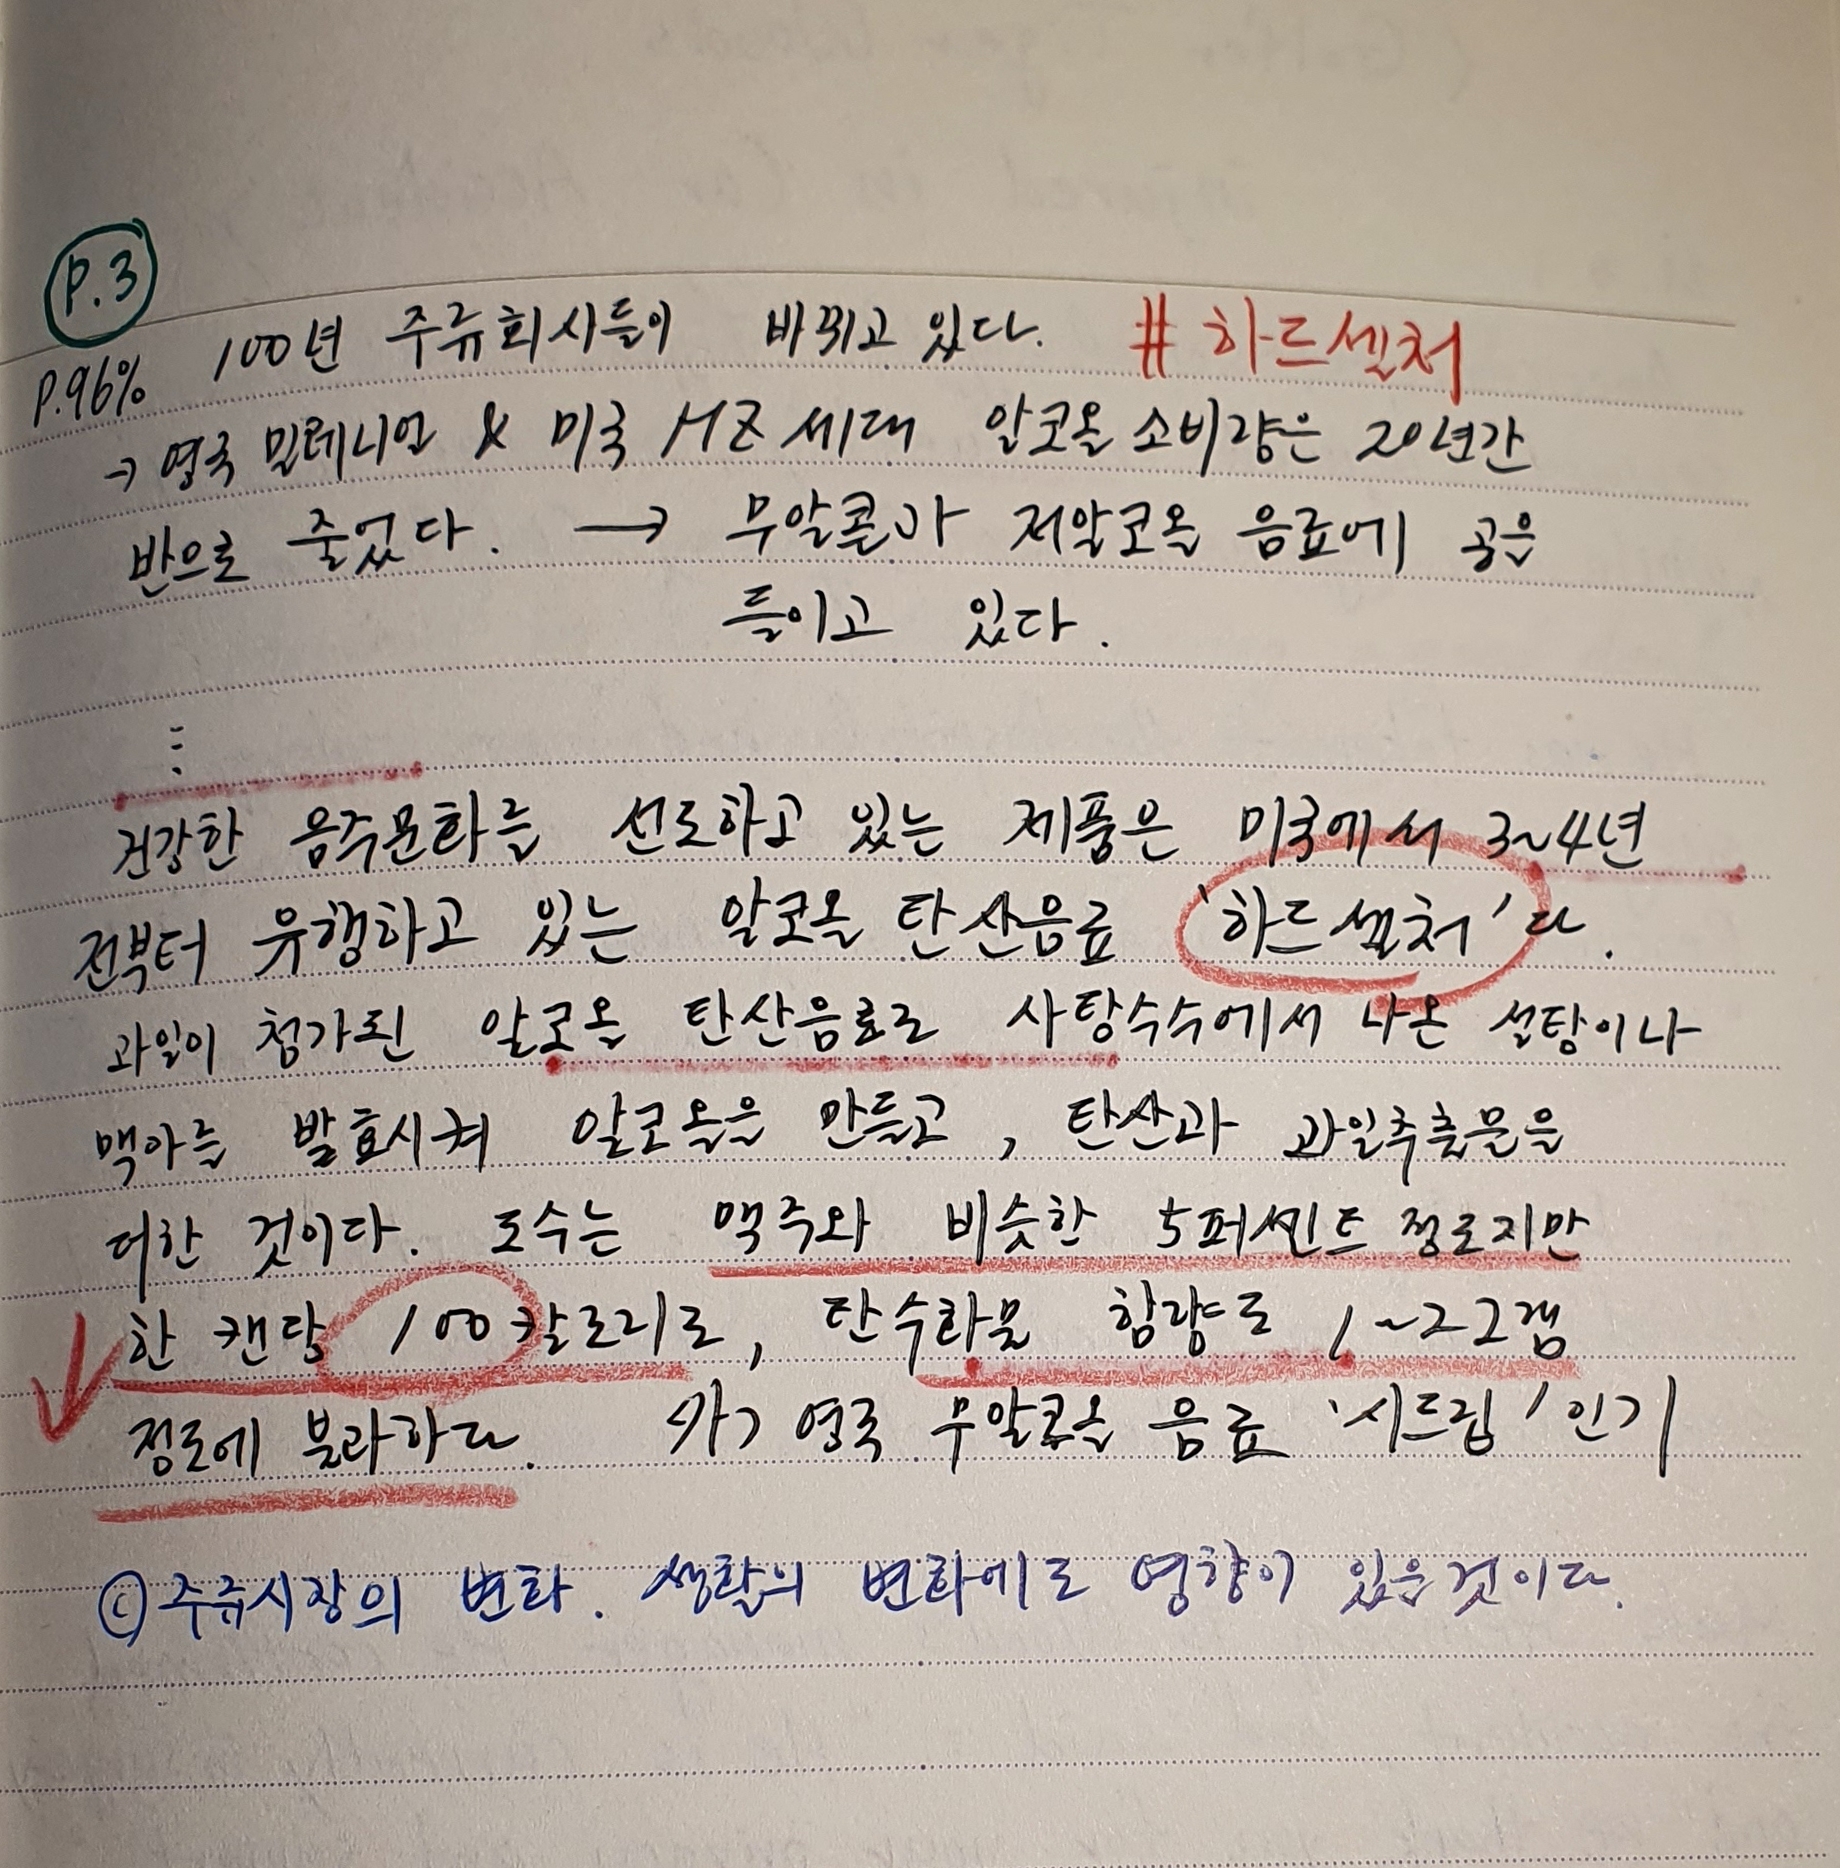 P.3
P.96% 100년 주류회사들이 바뀌고 있다. #하드셀처
→ 영국 밀레니얼 & 미국 MZ세대 알코올 소비량은 20년간
반으로 줄었다. → 무알콜과 저알코올 음료에 공을
들이고 있다.
⋮
건강한 음주문화를 선도하고 있는 제품은 미국에서 3~4년
전부터 유행하고 있는 알코올 탄산음료 '하드셀처'다.
과일이 첨가된 알코올 탄산음료로 사탕수수에서 나온 설탕이나
맥아를 발효시켜 알코올을 만들고, 탄산과 과일추출물을
더한 것이다. 도수는 맥주와 비슷한 5퍼센트 정도지만
한 캔당 100칼로리로, 탄수화물 함량도 1~2그램
정도에 불과하다. 영국 무알코올 음료 '시드립' 인기
ⓒ주류시장의 변화. 생활의 변화에도 영향이 있을것이다.